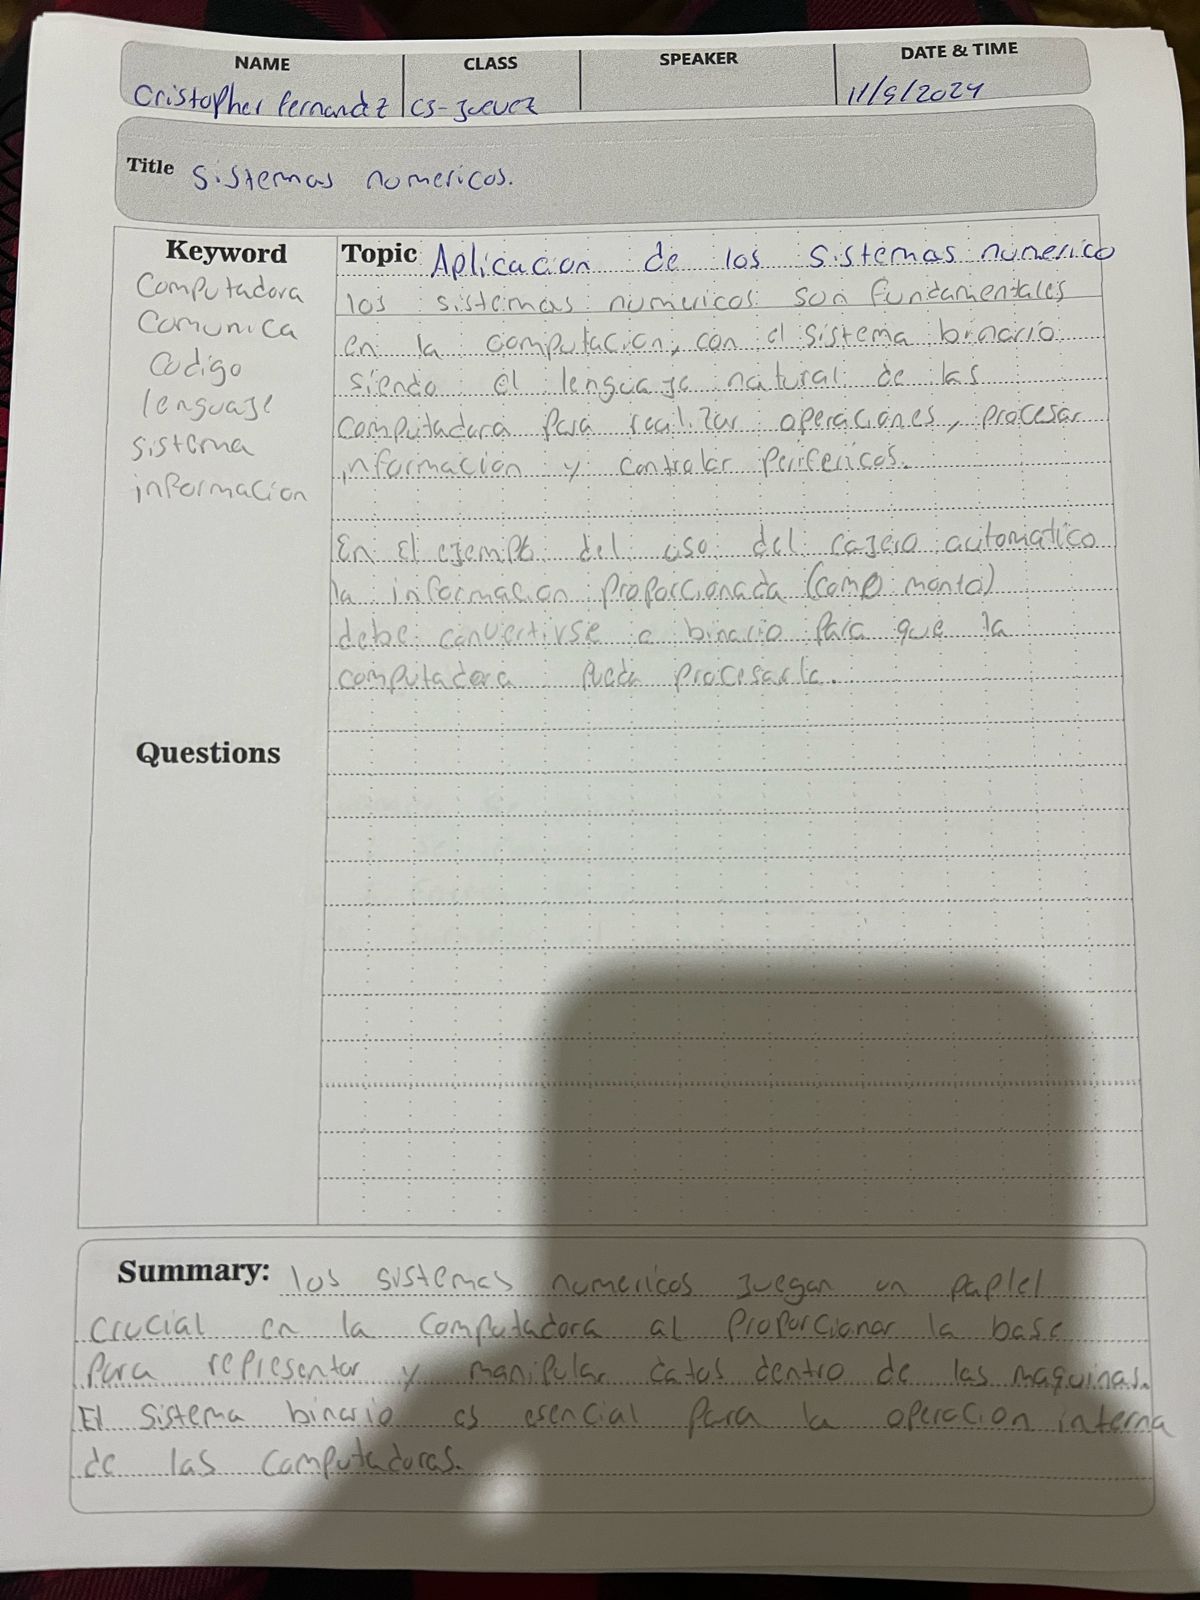 NAME CLASS SPEAKER DATE & TIME
Cristopher fernandz CS-juevez 11/9/2024
Title Sistemas numericos.
Keyword
Computadora
Comunica
Codigo
lenguaje
sistema
informacion
Topic Aplicacion de los sistemas numerico
los sistemas numericos son fundamentales
en la computacion, con el sistema binario
siendo el lenguaje natural de las
computadora para realizar operaciones, procesar
informacion y controlar perifericos.
En El ejemplo del uso del cajero automatico
la informacion proporcionada (como monto)
debe convertirse a binario para que la
computadora pueda procesarla.
Questions
Summary: los sistemas numericos juegan un paplel
crucial en la computadora al proporcionar la base
para representar y manipular datos dentro de las maquinas.
El sistema binario es esencial para la operacion interna
de las computadoras.